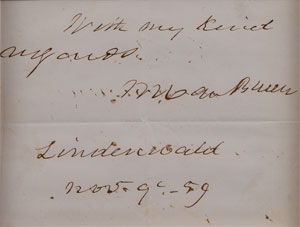 With my kind
regards.
M Van Buren
Lindenwald
Nov. 9th 59